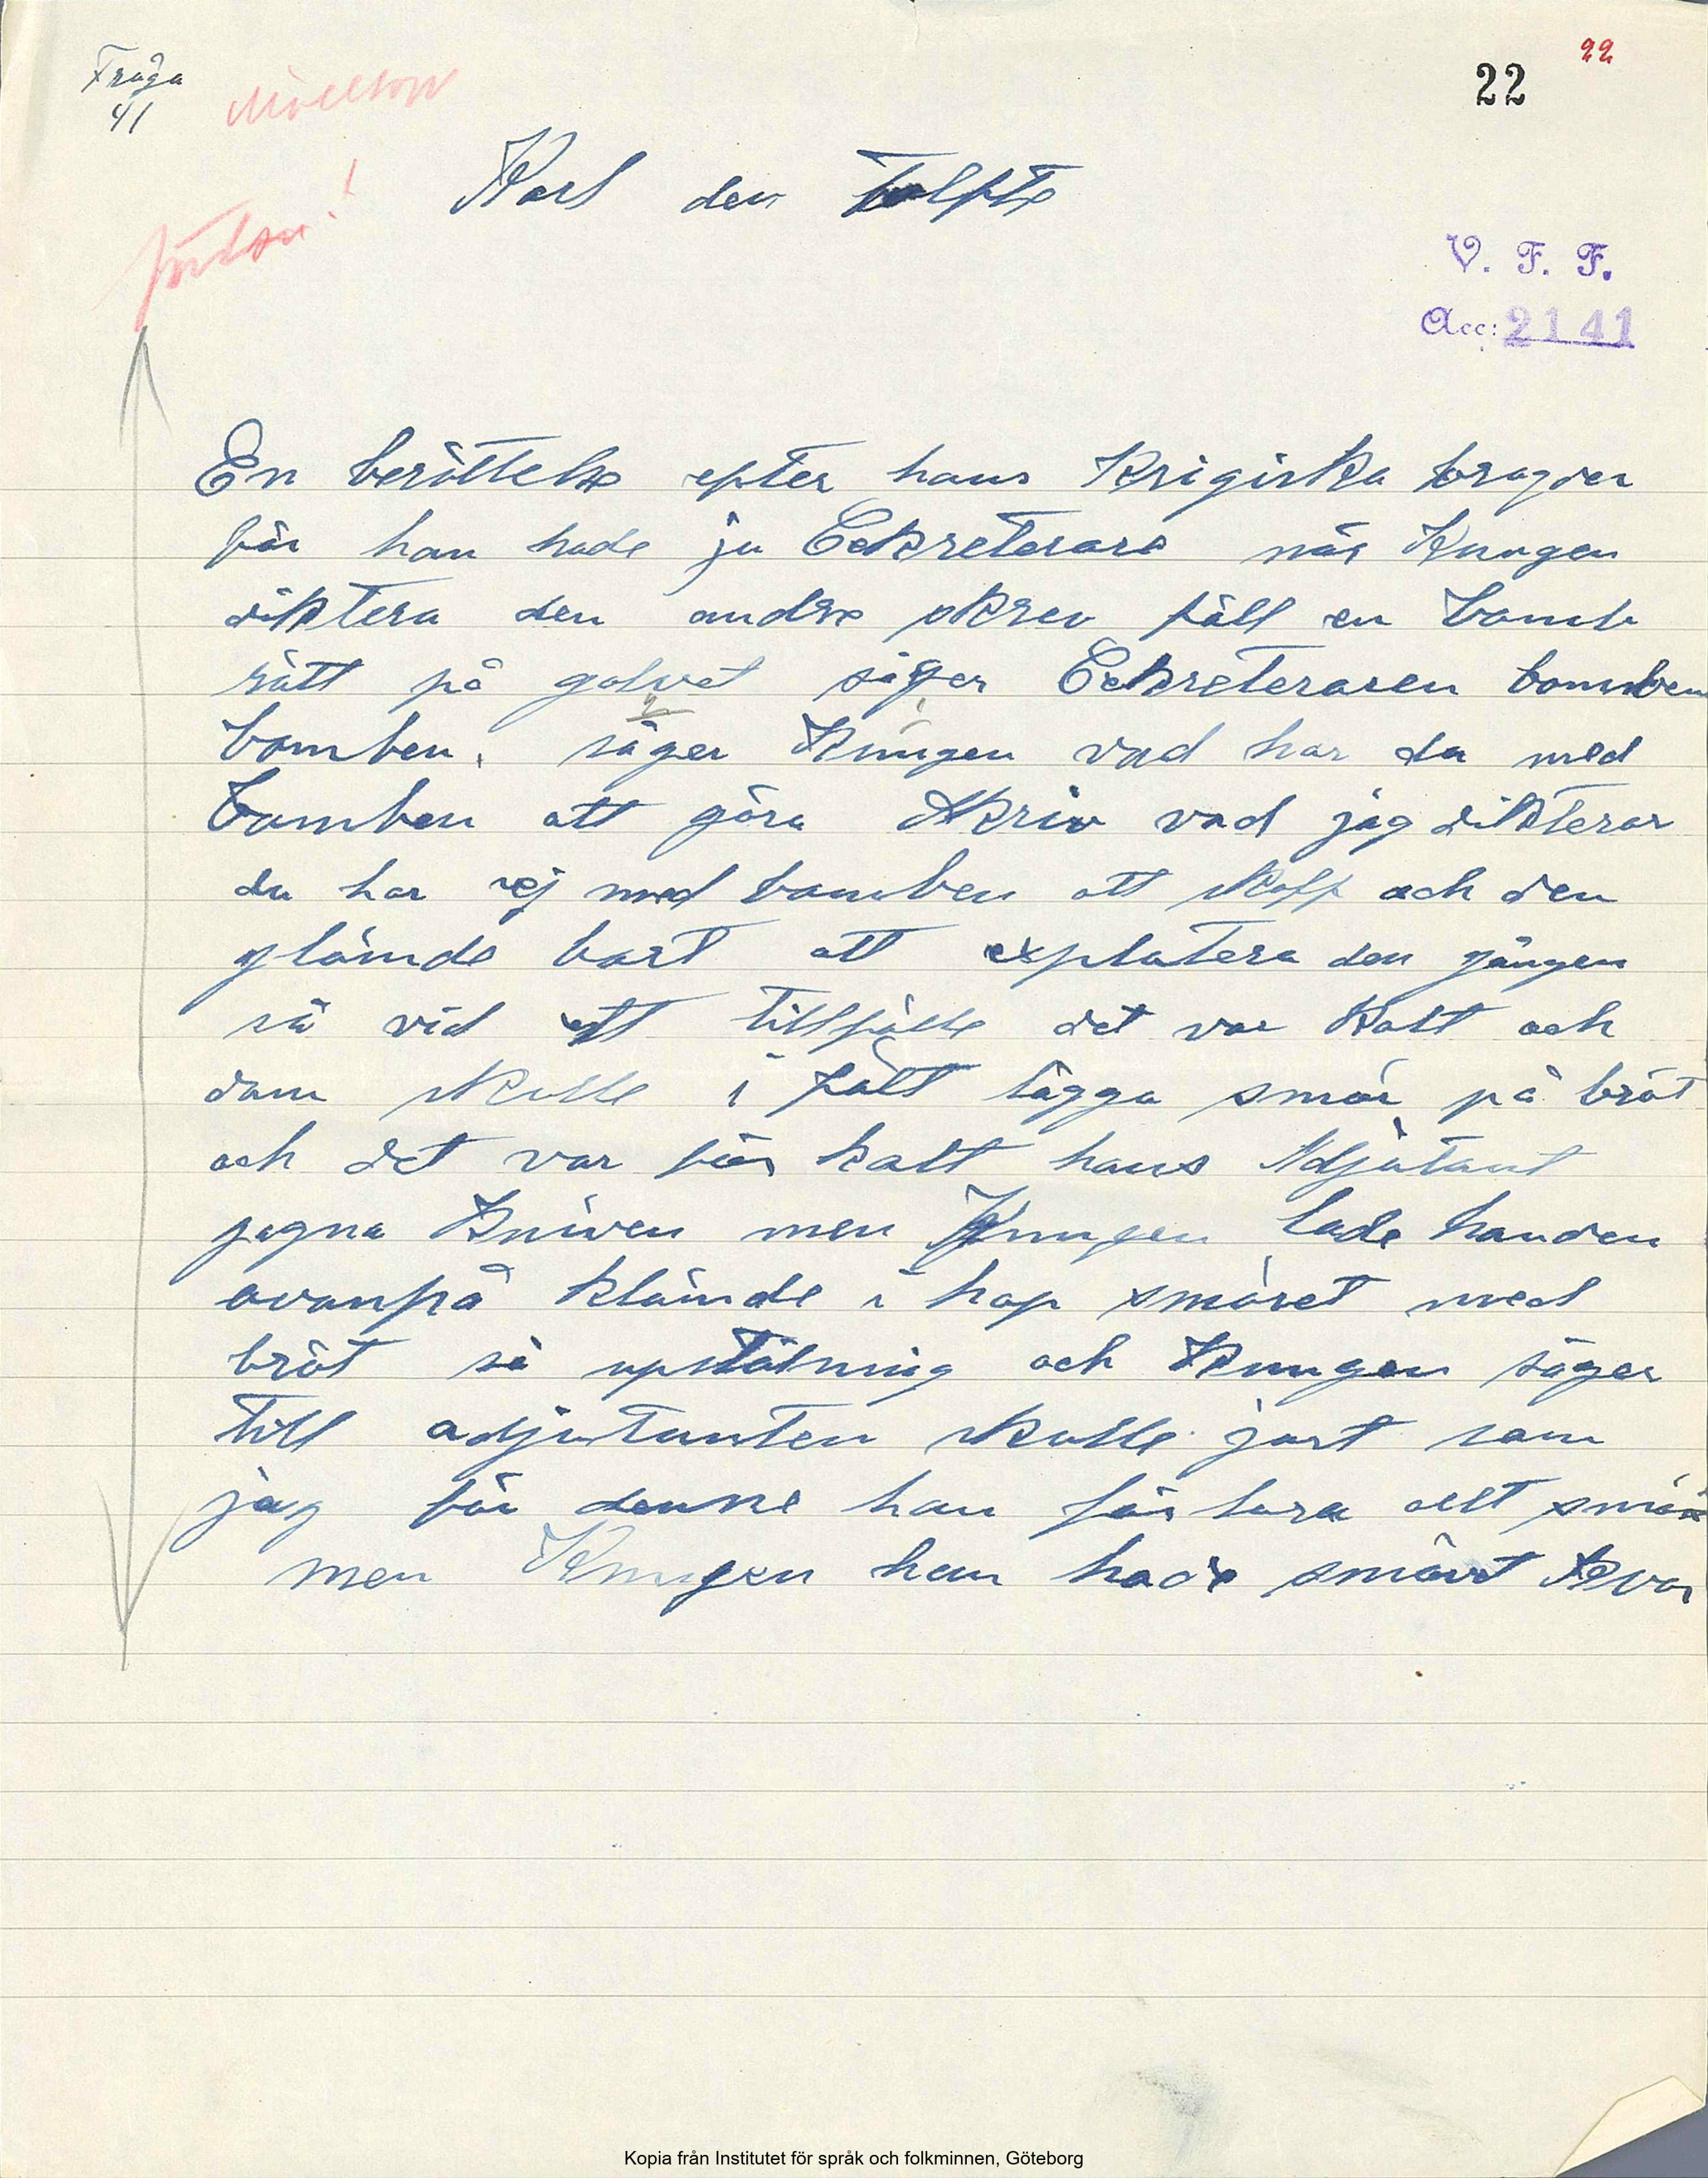 Fråga
41
22
22
Karl den Tolfte
V. F. F.
Acc: 2141
En berättelse efter hans Krigiska bragder
för han hade ju Cekreterare når Kungen
diktera den andre skrev fäll en bomb
rätt på golvet säger Cekreteraren bomben
bomben. säger Kungen vad har du med
bomben att göra Skriv vad jag dikterar
du har ej med bomben att skaff och den
glömde bort att explotera den gången
så vid ett tillfälle det var kalt och
dom skulle i fält lägga smör på bröt
och det var för kalt hans Adjutant
jagna kniven men Kungen lade handen
ovanpå klämde i hop smöret med
bröt så upställning och Kungen säger
till adjutanten skulle jort som
jag för denne han för lora allt smör
men Kungen han hade smöret kvar
Kopia från Institutet för språk och folkminnen, Göteborg